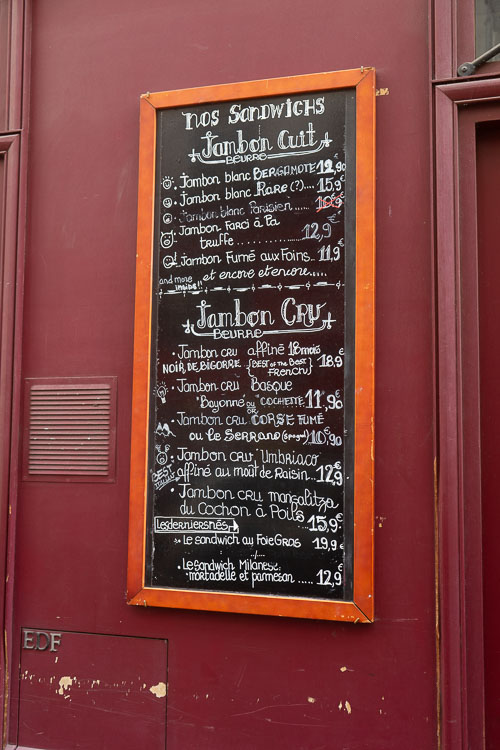 Nos Sandwichs
Jambon Cuit
BEURRE
Jambon blanc BERGAMOTE 12,90
Jambon blanc Rare (?).... 15,9€
Jambon blanc Parisien
Jambon Farci à Pa
truffe .......... 12,9€
Jambon Fumé aux Foins.. 11,9€
and more inside!! et encore et encore.....
Jambon Cru
BEURRE
Jambon cru affiné 18 mois
NOIR DE BIGORRE (BEST of the BEST French) 18,9€
Jambon cru Basque
"Bayonne" ou "COCHETTE" 11,90
Jambon cru CORSE FUMÉ
ou Le Serrano (Espagnol) 10,90
Jambon cru, Umbriaco
affiné au moût de Raisin... 12,9€
BEST
Jambon cru mangalitza
du Cochon à Poils.... 15,9€
Les derniers nés
Le sandwich au Foie Gras 19,9€
Le sandwich Milanese.
mortadelle et parmesan ..... 12,9€
EDF